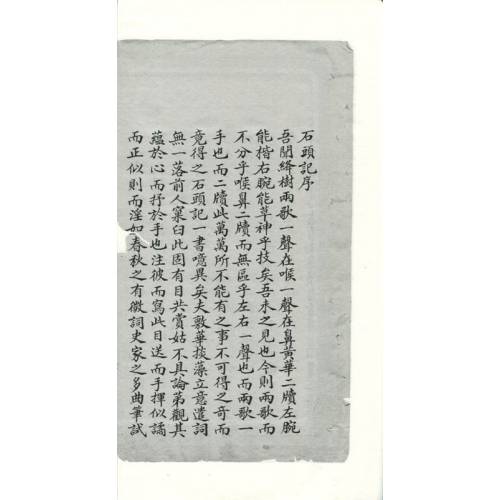 石頭記序
吾聞絳樹兩歌一聲在喉一聲在鼻黃華二牘左腕
能楷右腕能草神乎技矣吾未之見也今則兩歌而
不分乎喉鼻二牘而無區乎左右一聲也而兩歌一
手也而二牘此萬萬所不能有之事不可得之奇而
竟得之石頭記一書噫異矣夫敷華掞藻立意遣詞
無一落前人窠臼此固有目共賞姑不具論第觀其
蘊於心而抒於手也注彼而寫此目送而手揮似譎
而正似則而淫如春秋之有微詞史家之多曲筆試